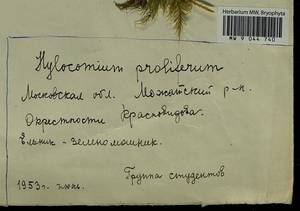 Herbarium MW, Bryophyta
MW 9 044 740
Hylocomium proliferum
Московская обл. Можайский р-н.
Окрестности Красновидова.
Ельник - зеленомошник.
Группа студентов
1953г. июль.